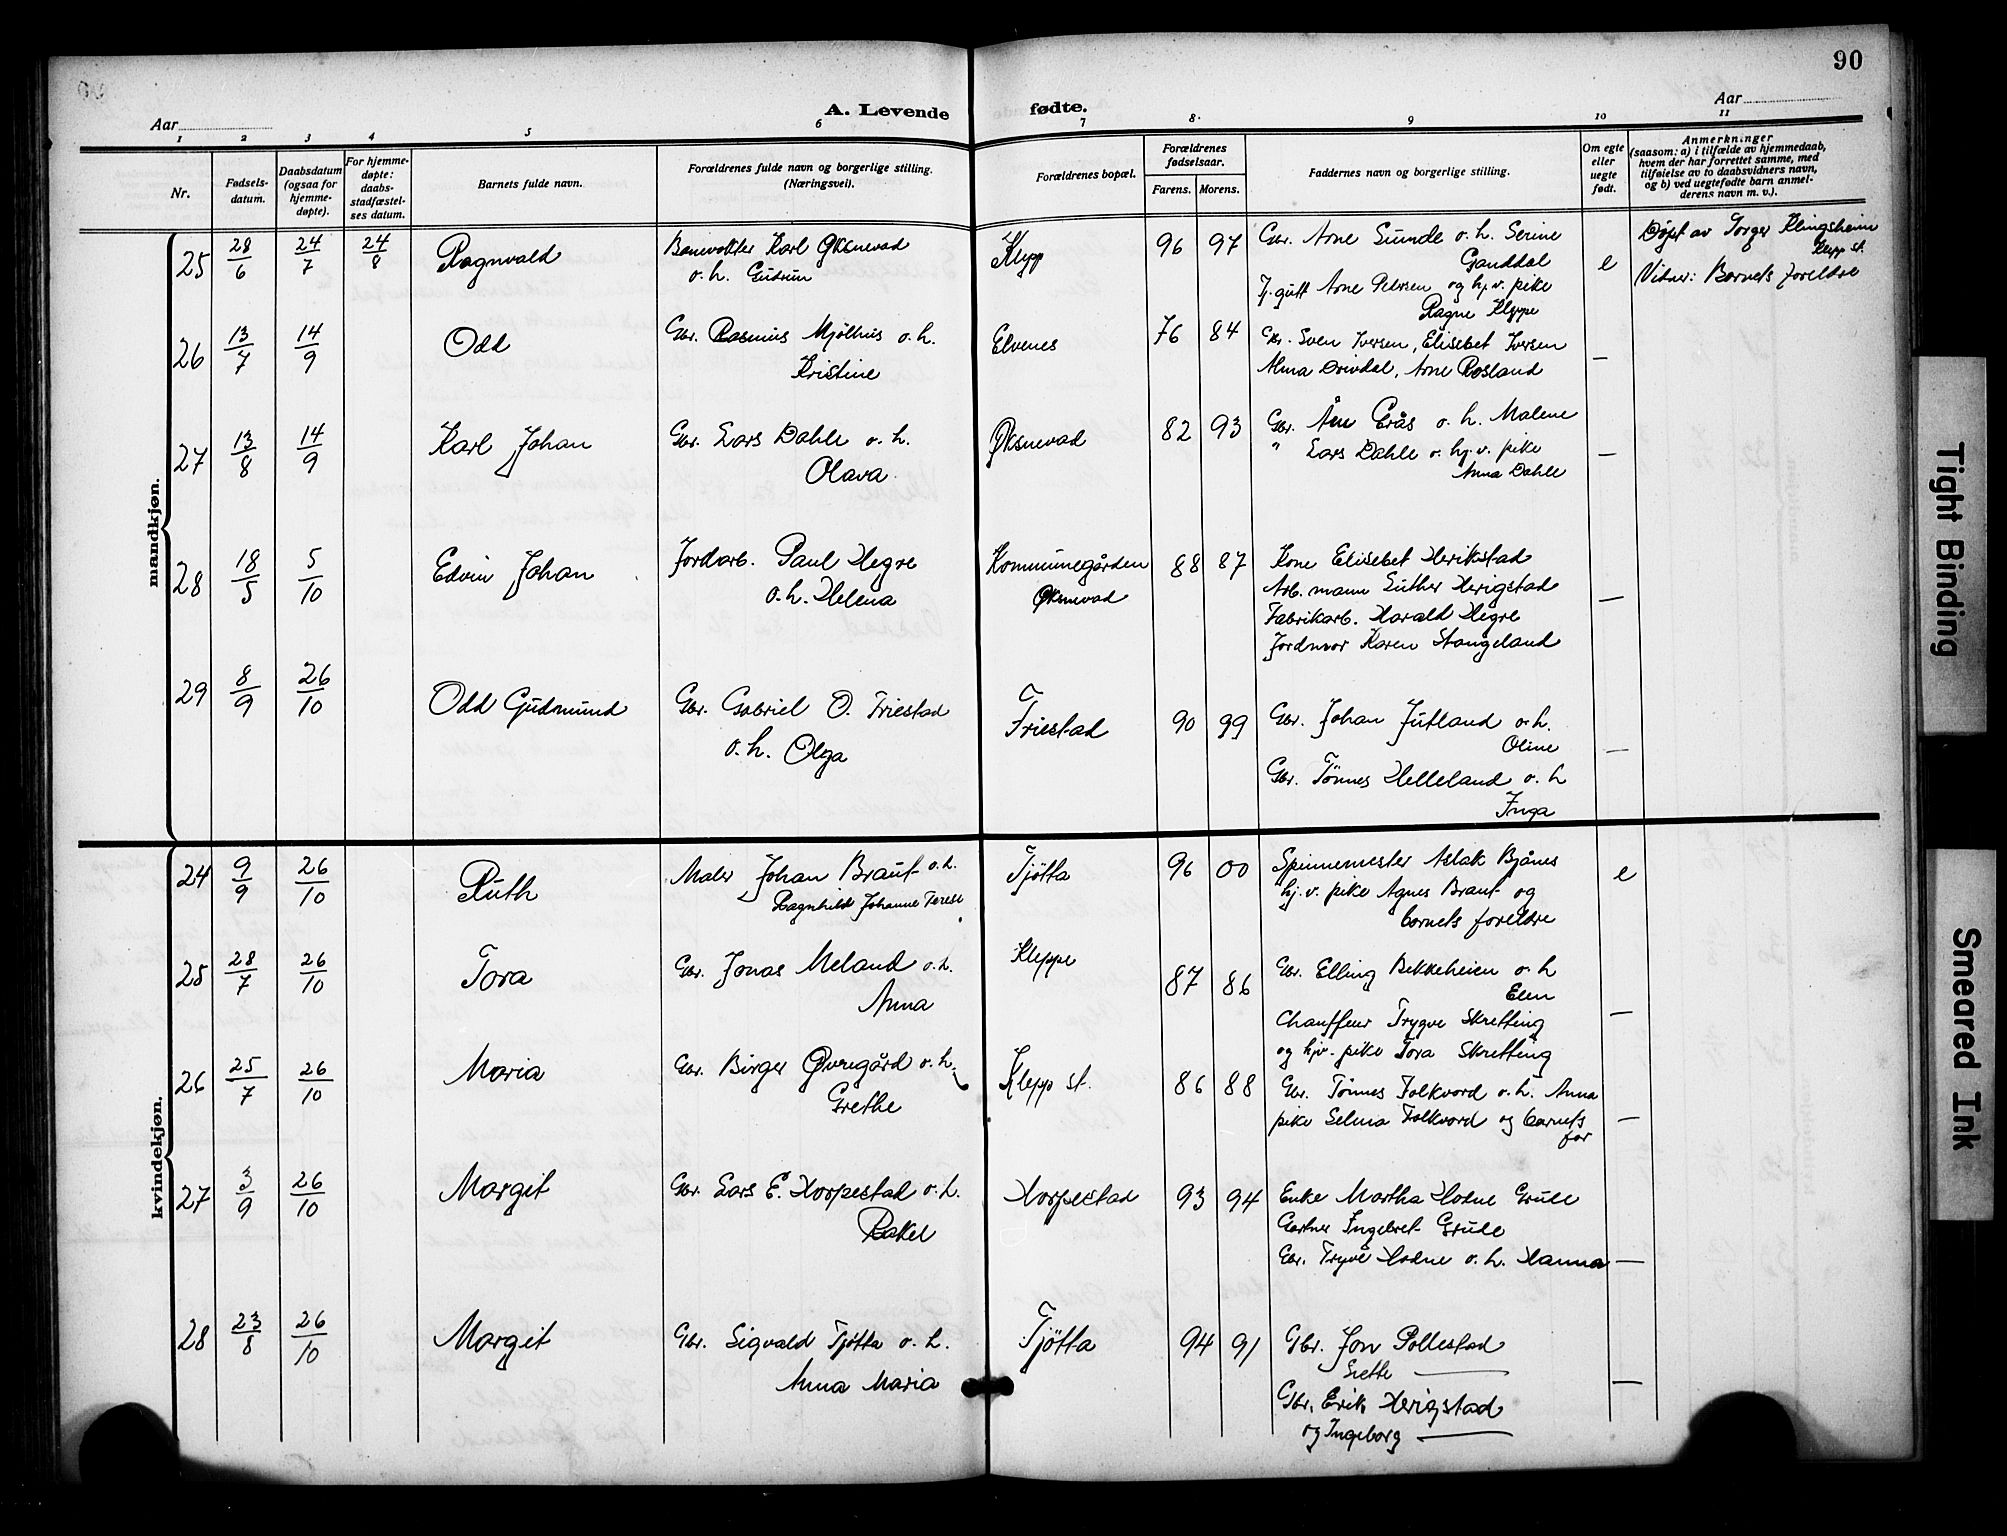 90
A. Levende fødte.
Aar
Aar
1 2 3 4 5 6 7 8. 9 10 11
Nr.
Fødsels-
datum.
Daabsdatum
(ogsaa for
hjemme-
døpte).
For hjemme-
døpte:
daabs-
stadfæstel-
ses datum.
Barnets fulde navn.
Forældrenes fulde navn og borgerlige stilling.
(Næringsvei).
Forældrenes bopæl.
Forældrenes
fødselsaar.
Farens. Morens.
Faddernes navn og borgerlige stilling.
Om egte
eller
uegte
født.
Anmerkninger
(saasom: a) i tilfælde av hjemmedaab,
hvem der har forrettet samme, med
tilføielse av to daabsvidners navn,
og b) ved uegtefødte barn anmel-
derens navn m. v.).
mandkjøn.
25 28/6 24/7 24/8 Ragnvald Banevokter Karl Øksnevad
o.h. Gudrun
Klepp 96 97 Gbr. Arne Sunde o.h. Serine
Ganddal
Tj.gutt Arne Pedersen og hj.v. pike
Ragne Kleppe
e
Døpt av Torger Klingsheim
Klepp st.
Vidner: Barnets foreldre
26 13/7 14/9 Odd Gbr. Rasmus Mjølhus o.h.
Kristine
Elvenes 76 84 Gbr. Sven Iversen, Elisebet Iversen
Alma Orivdal, Arne Rosland —
27 13/8 14/9 Karl Johan Gbr. Lars Dahle o.h.
Olava
Øksnevad 82 93 Gbr. Åne Erås o.h. Malene
" Lars Dahle o. hj.v. pike
Anna Dahle —
28 18/5 5/10 Edvin Johan Jordarb. Paul Hegre
o.h. Helena
Kommunegården
Øksnevad
88 87 Kone Elisebet Herikstad
Arb.mann Luther Herigstad
Fabrikarb. Harald Hegre
Jordmor Karen Stangeland —
29 8/9 26/10 Odd Gudmund Gbr. Gabriel O. Friestad
o.h. Olga
Friestad 90 99 Gbr. Johan Jutland o.h.
Oline
Gbr. Tønnes Helleland o.h
Inga —
kvindekjøn.
24 9/9 26/10 Ruth Maler Johan Braut o.h.
Ragnhild Johanne Terese
Tjøtta 96 00 Spinnemester Aslak Bjånes
hj.v. pike Agnes Braut og
barnets foreldre
e
25 28/7 26/10 Tora Gbr. Jonas Meland o.h.
Anna
Kleppe 87 86 Gbr. Elling Bekkeheien o.h
Elen
Chauffeur Trygve Skretting
og hjv. pike Tora Skretting —
26 25/7 26/10 Maria Gbr. Birger Øvregård o.h.
Grethe
Klepp st. 86 88 Gbr. Tønnes Folkvord o.h. Anna
pike Selma Folkvord og barnets
far —
27 3/9 26/10 Margit Gbr. Lars E. Horpestad o.h.
Rakel
Horpestad 93 94 Enke Martha Hodne Grude
Gartner Ingebret Grude
Gbr. Tryve Hodne o.h. Hanna —
28 23/8 26/10 Margit Gbr. Sigvald Tjøtta o.h.
Anna Maria
Tjøtta 94 91 Gbr. Jon Pollestad
Grethe —
Gbr. Erik Herigstad
og Ingeborg — —
Tight Binding
Smeared Ink